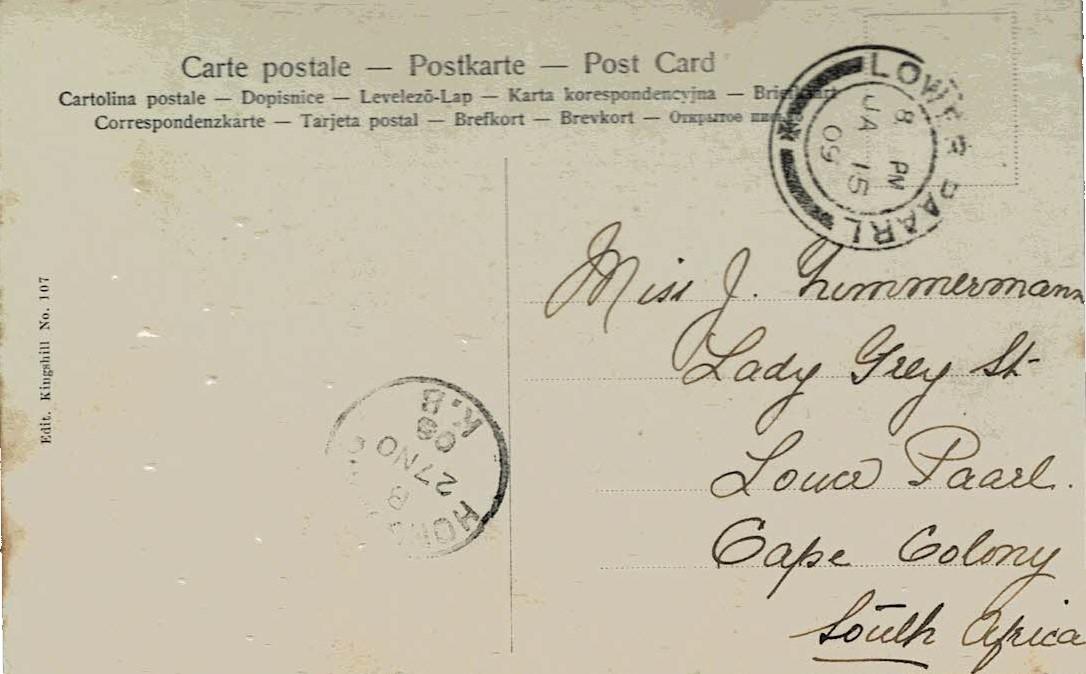 Carte postale — Postkarte — Post Card
Cartolina postale — Dopisnice — Levelező-Lap — Karta korespondencyjna —
Correspondenzkarte — Tarjeta postal — Brefkort — Brevkort — Открытое
LOWER PAARL
8 PM
JA 15
09
Miss J. Zimmermann
Lady Grey St
Lower Paarl.
Cape Colony
South Africa
Edit. Kingshill No. 107
B
27 NO
08
K.B